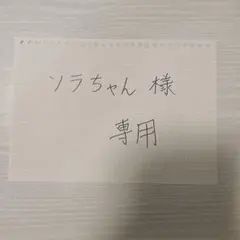 ソラちゃん 様
専用